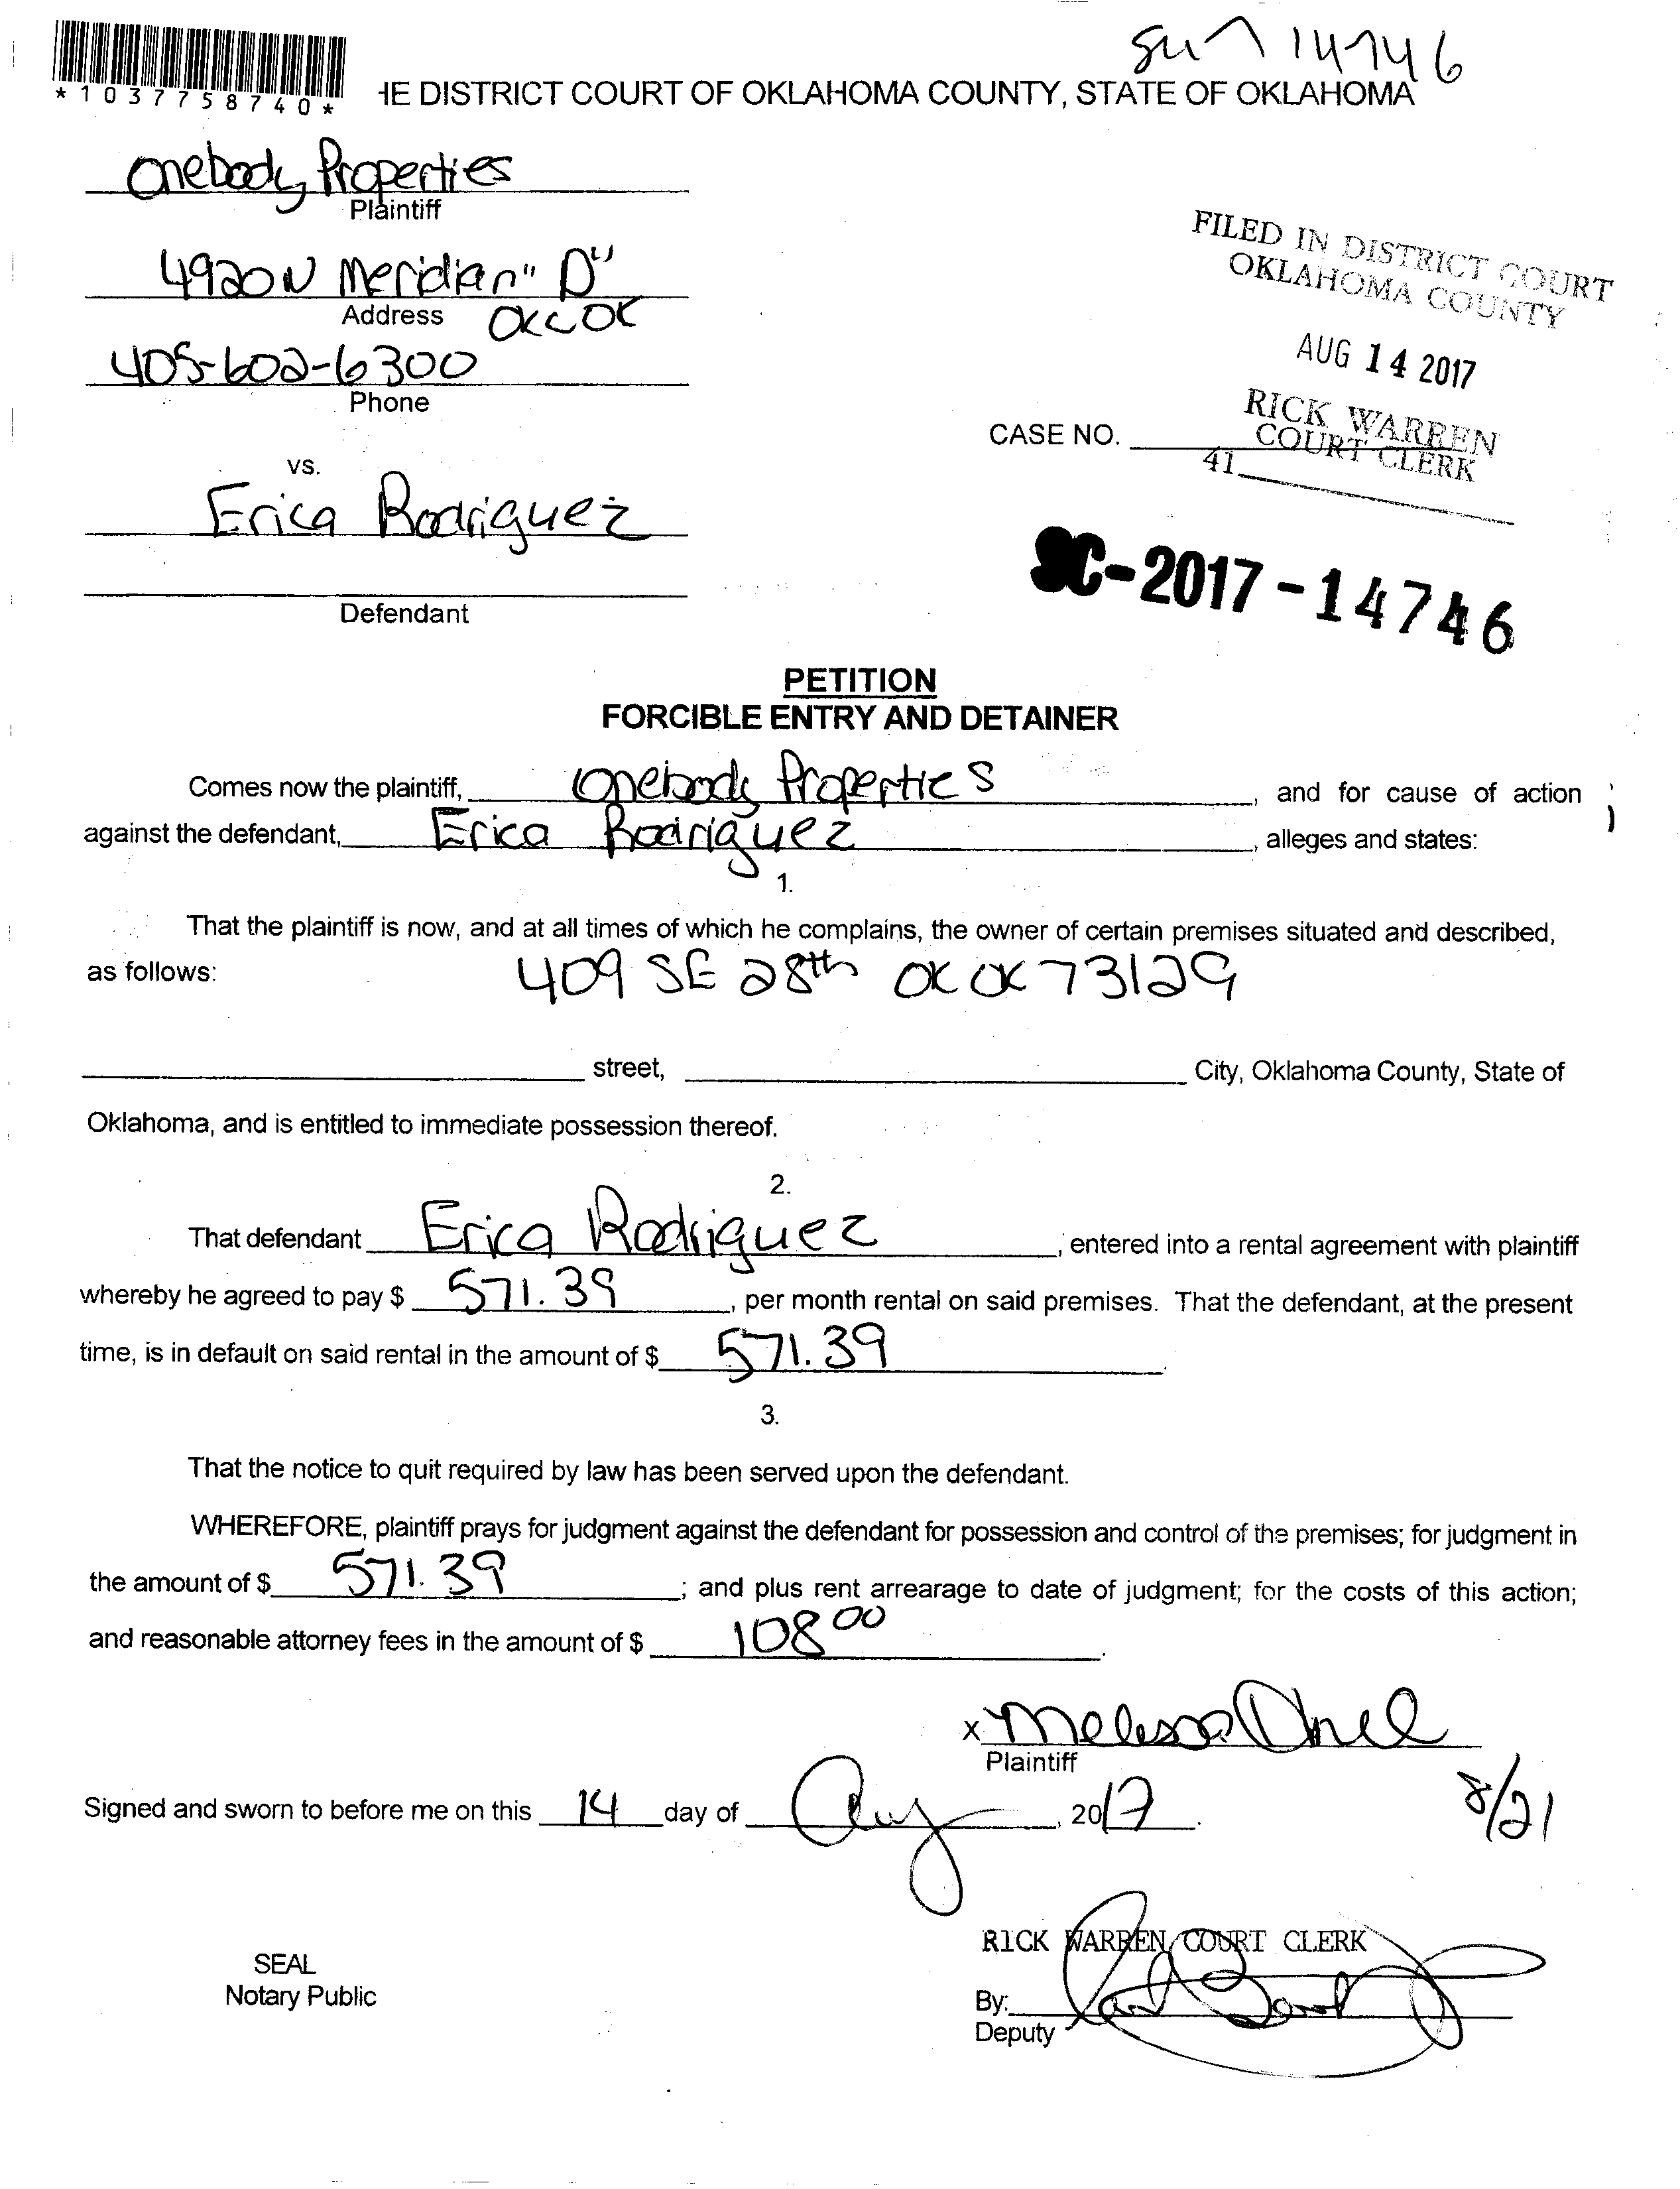 14746
*1037758740*
HE DISTRICT COURT OF OKLAHOMA COUNTY, STATE OF OKLAHOMA
Onebody Properties
Plaintiff
4920 N Meridian "D"
Address OKC OK
405-602-6300
Phone
vs.
Erica Rodriguez
Defendant
FILED IN DISTRICT COURT
OKLAHOMA COUNTY
AUG 14 2017
RICK WARREN
COURT CLERK
41
CASE NO.
SC-2017-14746
PETITION
FORCIBLE ENTRY AND DETAINER
Comes now the plaintiff, Onebody Properties, and for cause of action
against the defendant, Erica Rodriguez, alleges and states:
1.
That the plaintiff is now, and at all times of which he complains, the owner of certain premises situated and described,
as follows: 409 SE 28th OK OK 73129
street, City, Oklahoma County, State of
Oklahoma, and is entitled to immediate possession thereof.
2.
That defendant Erica Rodriguez, entered into a rental agreement with plaintiff
whereby he agreed to pay $ 571.39, per month rental on said premises. That the defendant, at the present
time, is in default on said rental in the amount of $ 571.39.
3.
That the notice to quit required by law has been served upon the defendant.
WHEREFORE, plaintiff prays for judgment against the defendant for possession and control of the premises; for judgment in
the amount of $ 571.39; and plus rent arrearage to date of judgment; for the costs of this action;
and reasonable attorney fees in the amount of $ 108 00.
x Melissa
Plaintiff
Signed and sworn to before me on this 14 day of Aug, 2017. 8/21
RICK WARREN COURT CLERK
SEAL
Notary Public
By:
Deputy